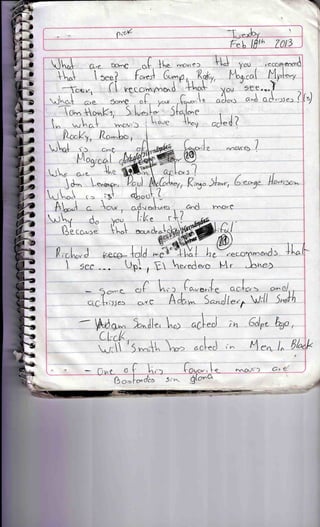 Tuesday
Feb 19th 2013
What are some of the movies that you recommend
that I see? Forest Gump, Rocky, Magical Mystery
Tour, I recommend that you see...
What are some of your favorite actors and actresses?
Tom Hanks, Silvester Stalone
In what movies have they acted?
Rocky, Rambo,
What is one of favorite movies?
Magical
Who are the actors?
John Lennon, Paul McCartney, Ringo Starr, George Harrison
What is it about?
About a tour, adventures and more
Why do you like it?
Because that
Richard told me that he recommends that
I see ... Up!, El heredero Mr Jones
- Some of his favorite actors and
actrisses are Adam Sandler, Will Smith
- Adam Sandler has acted in Golpe bajo,
Click,
Will Smith has acted in Men In Black
- One of his favorite movies are
Bastardos sin gloria